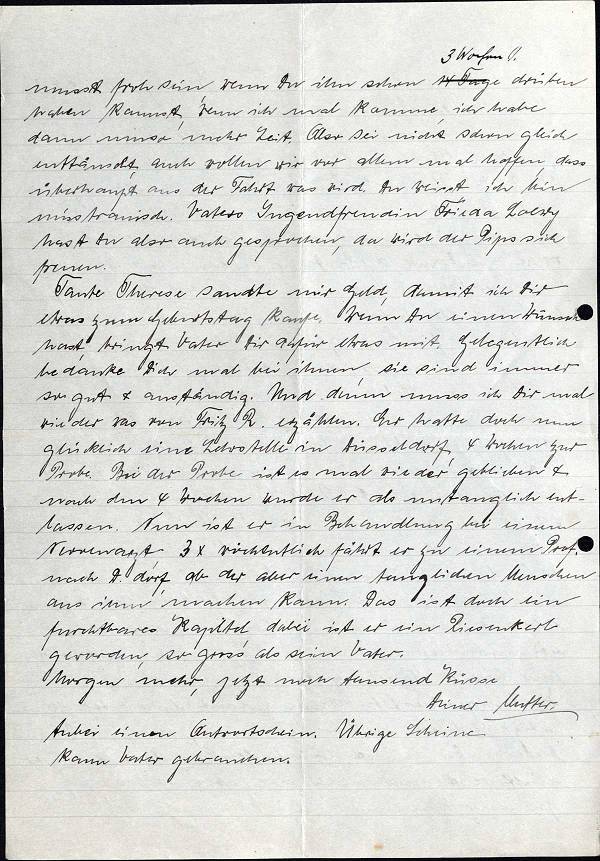 3 Wochen !.
musst froh sein wenn Du ihn schon 14 Tage drüben
haben kannst, wenn ich mal komme, ich habe
dann mehr Zeit. Also sei nicht schon gleich
enttäuscht, auch wollen wir vor allem mal hoffen, dass
überhaupt aus der Fahrt was wird. Du weisst ich bin
misstrauisch. Vaters Jugendfreundin Frieda Loewy
hast Du also auch gesprochen, da wird der Pips sich
freuen.
Tante Therese sandte mir Geld, damit ich Dir
etwas zum Geburtstag kaufe. Wenn Du einen Wunsch
hast, bringt Vater Dir dafür etwas mit. Gelegentlich
bedanke Dich mal bei ihnen, sie sind immer
so gut & anständig. Und dann muss ich Dir mal
wieder was von Fritz R. erzählen. Er hatte doch nun
glücklich eine Lehrstelle in Düsseldorf, 4 Wochen zur
Probe. Bei der Probe ist es mal wieder geblieben &
nach den 4 Wochen wurde er als untauglich ent-
lassen. Nun ist er in Behandlung bei einem
Nervenarzt 3 x wöchentlich fährt er zu einem Prof.
nach D. dorf, ob der aber einen tauglichen Menschen
aus ihm machen kann. Das ist doch ein
furchtbares Kapitel dabei ist er ein Riesenkerl
geworden, so gross als sein Vater.
Morgen mehr, jetzt noch tausend Küsse
Deiner Mutter.
Anbei einen Antwortschein. Übrige Scheine
kann Vater gebrauchen.